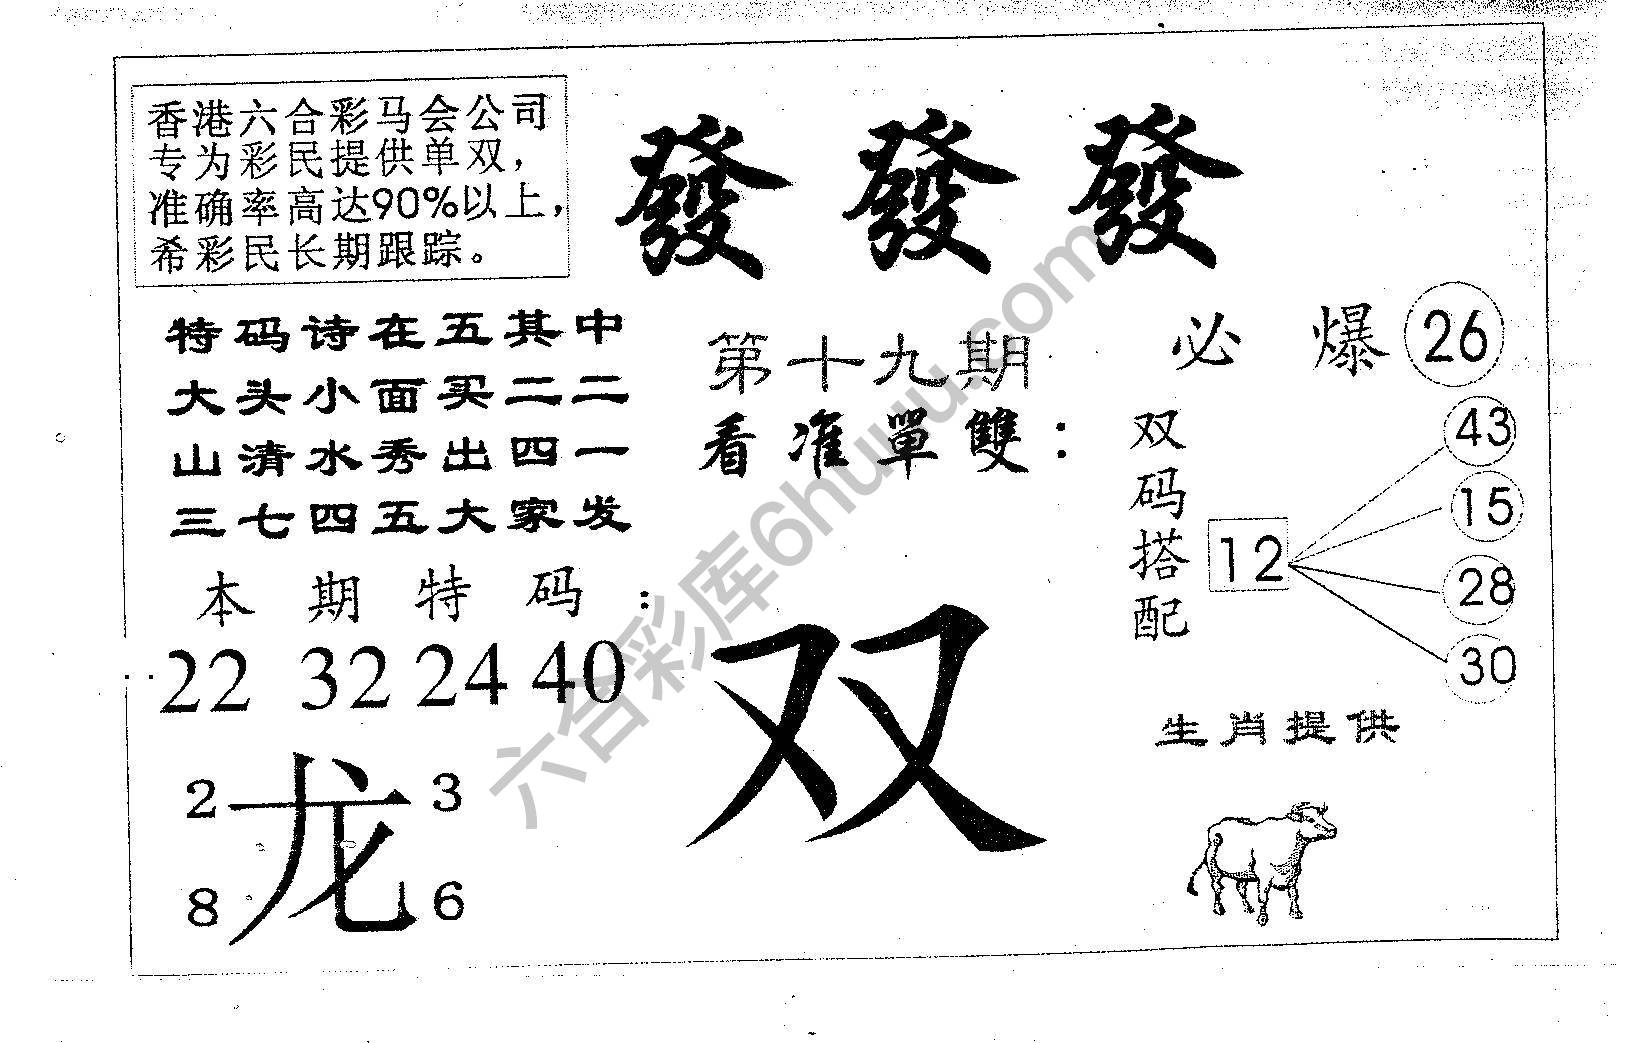 香港六合彩马会公司
专为彩民提供单双，
准确率高达90%以上，
希彩民长期跟踪。
發發發
特码诗在五其中
大头小面买二二
山清水秀出四一
三七四五大家发
第十九期
看准單雙：
必爆26
双码搭配
12
43
15
28
30
本期特码：
22 32 24 40
双
生肖提供
2 3
龙
8 6
六合彩库6huuu.com